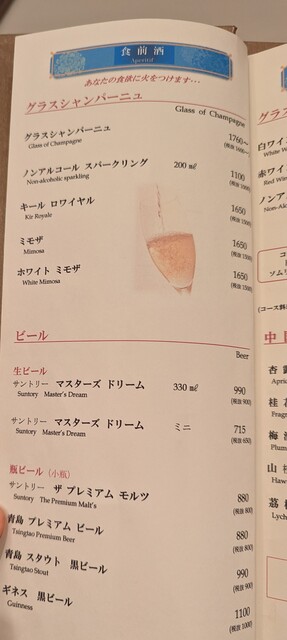 食前酒
Aperitif
あなたの食欲に火をつけます…
グラスシャンパーニュ
Glass of Champagne
グラスシャンパーニュ 1760～
Glass of Champagne
ノンアルコール スパークリング 200㎖ 1100
Non-alcoholic sparkling (税抜 1000)
キール ロワイヤル 1650
Kir Royale (税抜 1500)
ミモザ 1650
Mimosa (税抜 1500)
ホワイト ミモザ 1650
White Mimosa (税抜 1500)
ビール
Beer
生ビール
サントリー マスターズ ドリーム 330㎖ 990
Suntory Master's Dream (税抜 900)
サントリー マスターズ ドリーム ミニ 715
Suntory Master's Dream (税抜 650)
瓶ビール (小瓶)
サントリー ザ プレミアム モルツ 880
Suntory The Premium Malt's (税抜 800)
青島 プレミアム ビール 880
Tsingtao Premium Beer (税抜 800)
青島 スタウト 黒ビール 990
Tsingtao Stout (税抜 900)
ギネス 黒ビール 1100
Guinness (税抜 1000)
グラ
白ワイ
White W
赤ワイ
Red Win
ノンア
Non-Al
コ
ソムリ
(コース料
中
杏
Apric
桂
Fragr
梅
Plum
山
Haw
荔
Lych